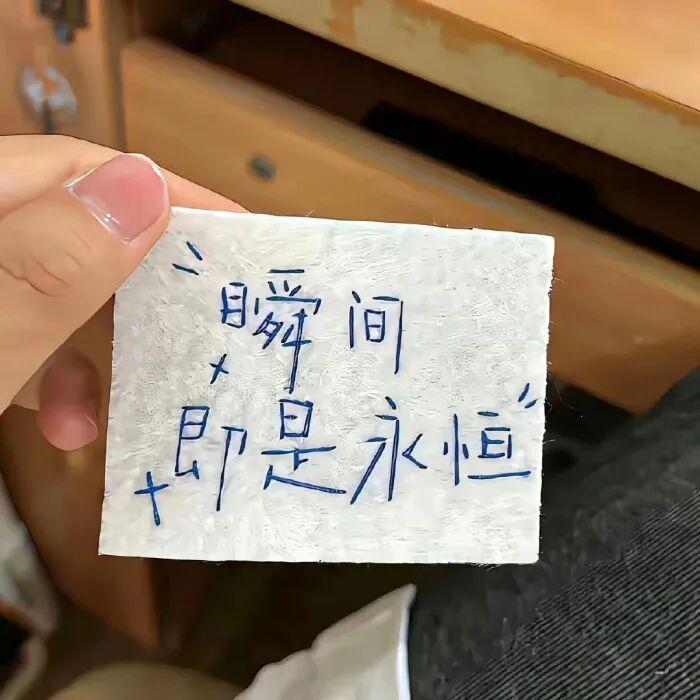 "瞬间
即是永恒"